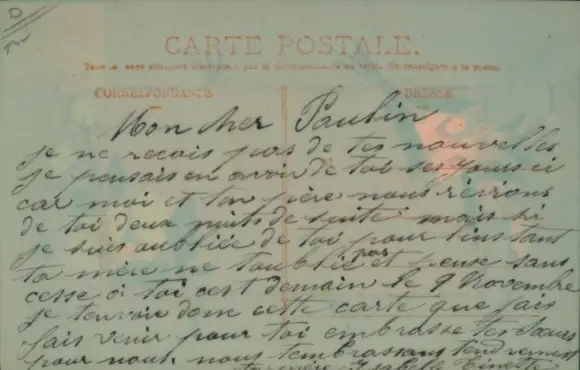 D
CARTE POSTALE.
CORRESPONDANCE
Mon cher Paulin
je ne reçois pas de tes nouvelles
je pensais en avoir de toi ses jours ci
car moi et ton père nous rêvons
de toi deux nuits de suite mais si
je suis oubliée de toi pour l'instant
ta mère ne t'oublie pas et pense sans
cesse à toi c'est demain le 9 Novembre
je t'envoie donc cette carte que fais
fais venir pour toi embrasse tes Sœurs
pour nous. nous t'embrassons tendrement
ta mère Isabelle